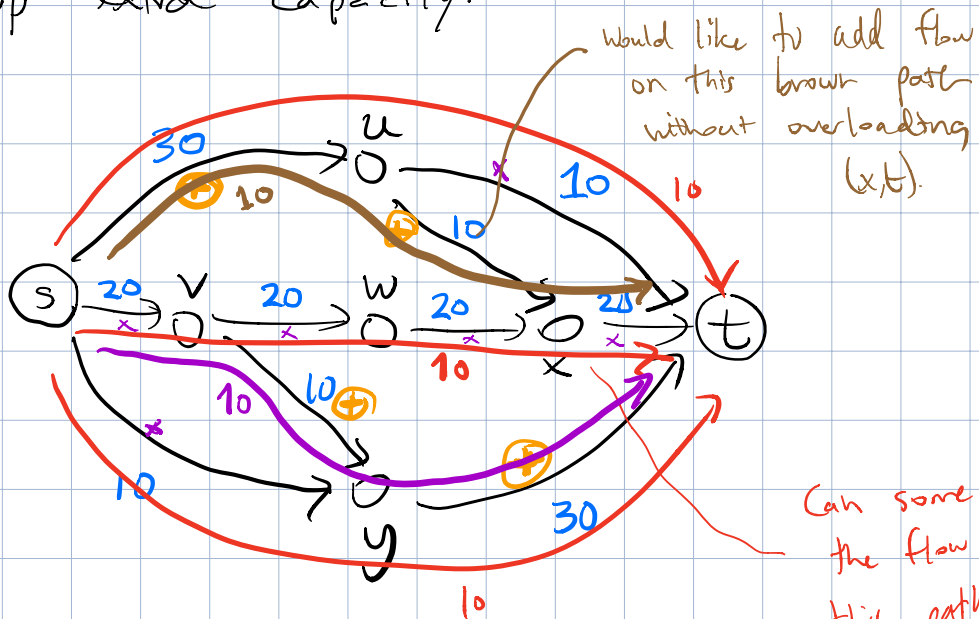 capacity.
would like to add flow
on this brown path
without overloading
(x,t).
u
30
10
10
10
10
s
v
w
20
20
20
20
t
x
10
10
10
10
30
y
10
Can some
the flow
this path